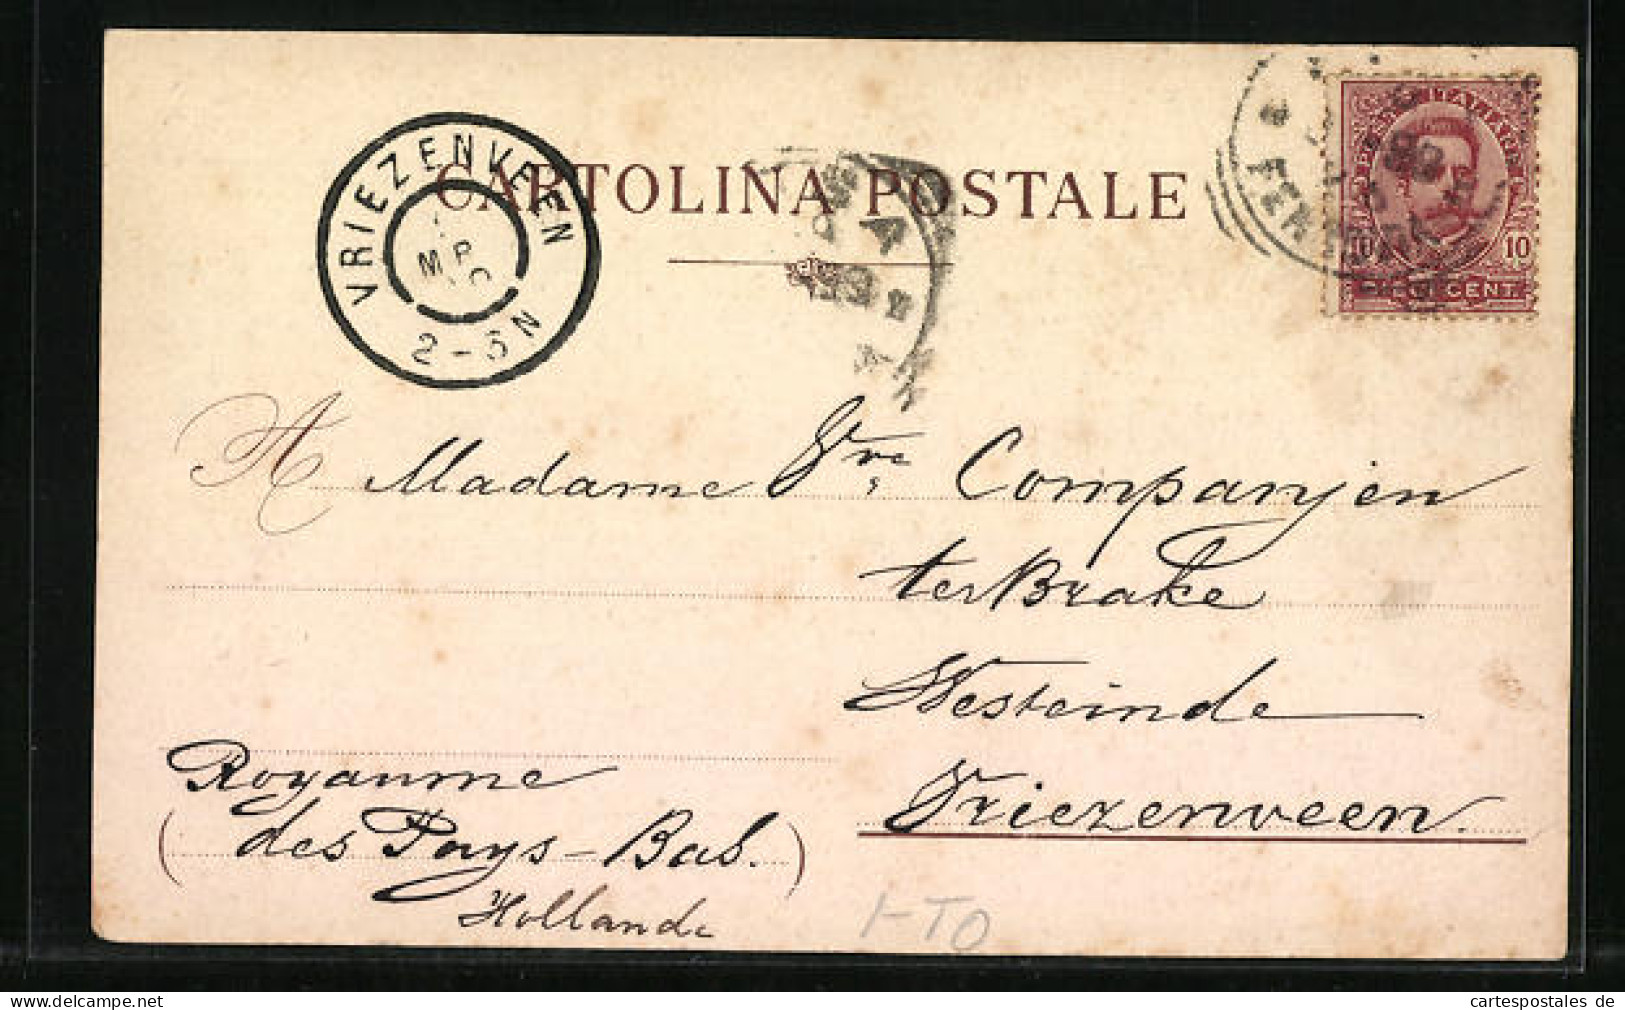 CARTOLINA POSTALE
VRIEZENVEEN
2-5N
10 10
CENT.
A Madame Vve Companjen
ter Brake
Westeinde
Vriezenveen.
Royaume
(des Pays-Bas.)
Hollande
I-TO
cartespostales de